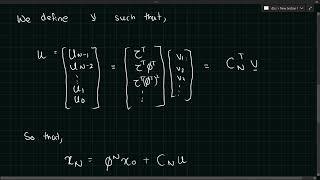 We define v such that,
u = [u_{N-1} u_{N-2} ⋮ u_1 u_0] = [τ^T τ^T φ^T τ^T(φ^T)^2 ⋮] [v_1 v_2 v_3 ⋮] = C_N^T v
So that,
x_N = φ^N x_0 + C_N u